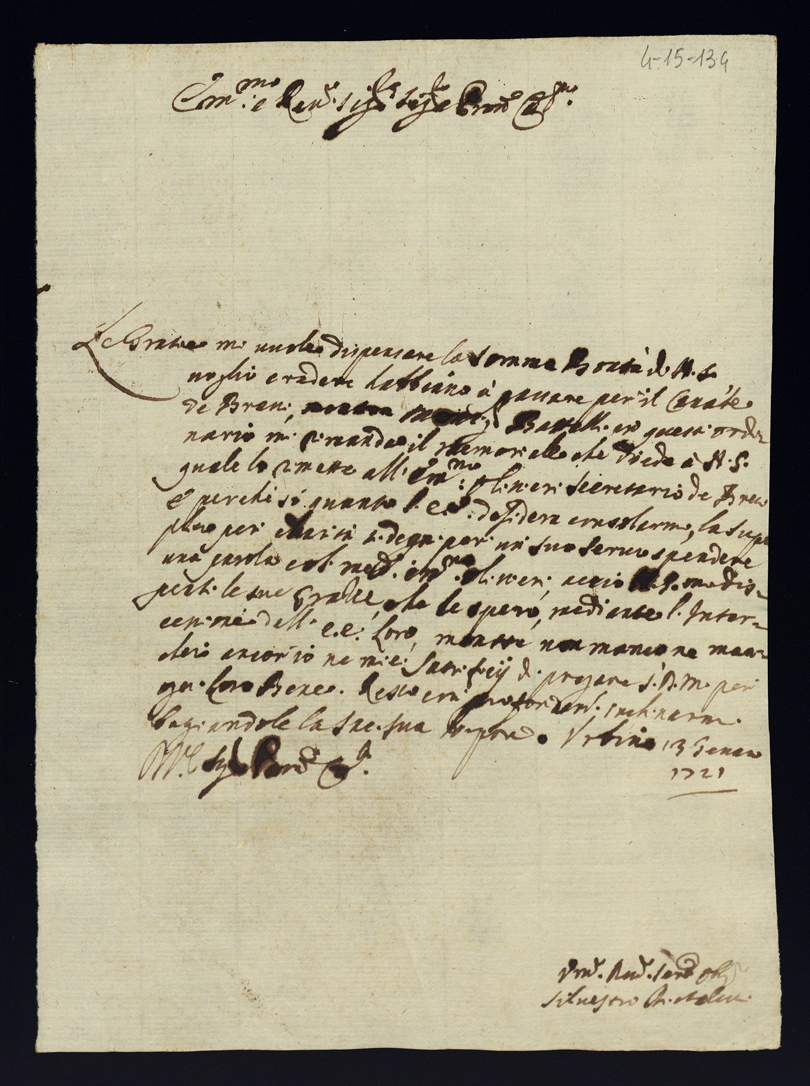 4-15-134
Em.mo e Rev. Sig.r Sig.e Pron. Col.mo
Le Gratie mi vuole dispensare la somma Bontà di N. S.
voglio credere habbiano à passare per il Canale
de Brevi, Battelli in questi ordi=
nario mi rimanda il memoriale che diede à N. S.
quale lo rimette all' Em.mo Olivieri Secretario de Brevi
E perche sò quanto l'e.v. desidera consolarmi, la sup
plico per charità si degni per un suo servo spendere
una parola col med. em.mo Olivieri, acciò N. S. mi dis=
pensi le sue Gratie, che le spero, mediante l'Inter=
cessione dell' e.e. Loro, mentre non manco ne man=
cherò ancor io ne miei Sacrificij di pregare S. D. M. per
ogni Loro Bene. Resto con inchinarmi
baciandole la Sac. sua . Urbino 13 Genaro
1721
D. V. E. Sig. Pron. Col.
Um. Rev. Serv. Obl.
Silvestro